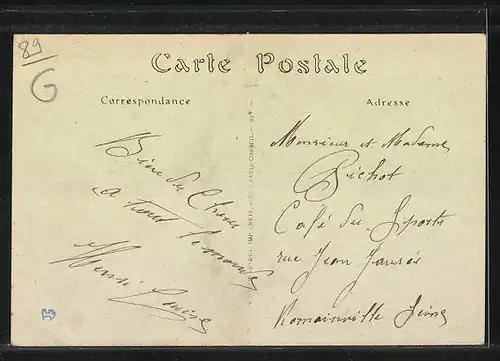 89/
G
Carte Postale
Correspondance
Adresse
Bien des Choses
a tout le monde
Louise
Monsieur et Madame
Bichot
Café des Sports
rue Jean Jaurès
Romainville Seine